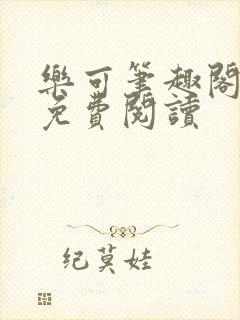 樂可筆趣閣
免費閱讀
纪莫娃